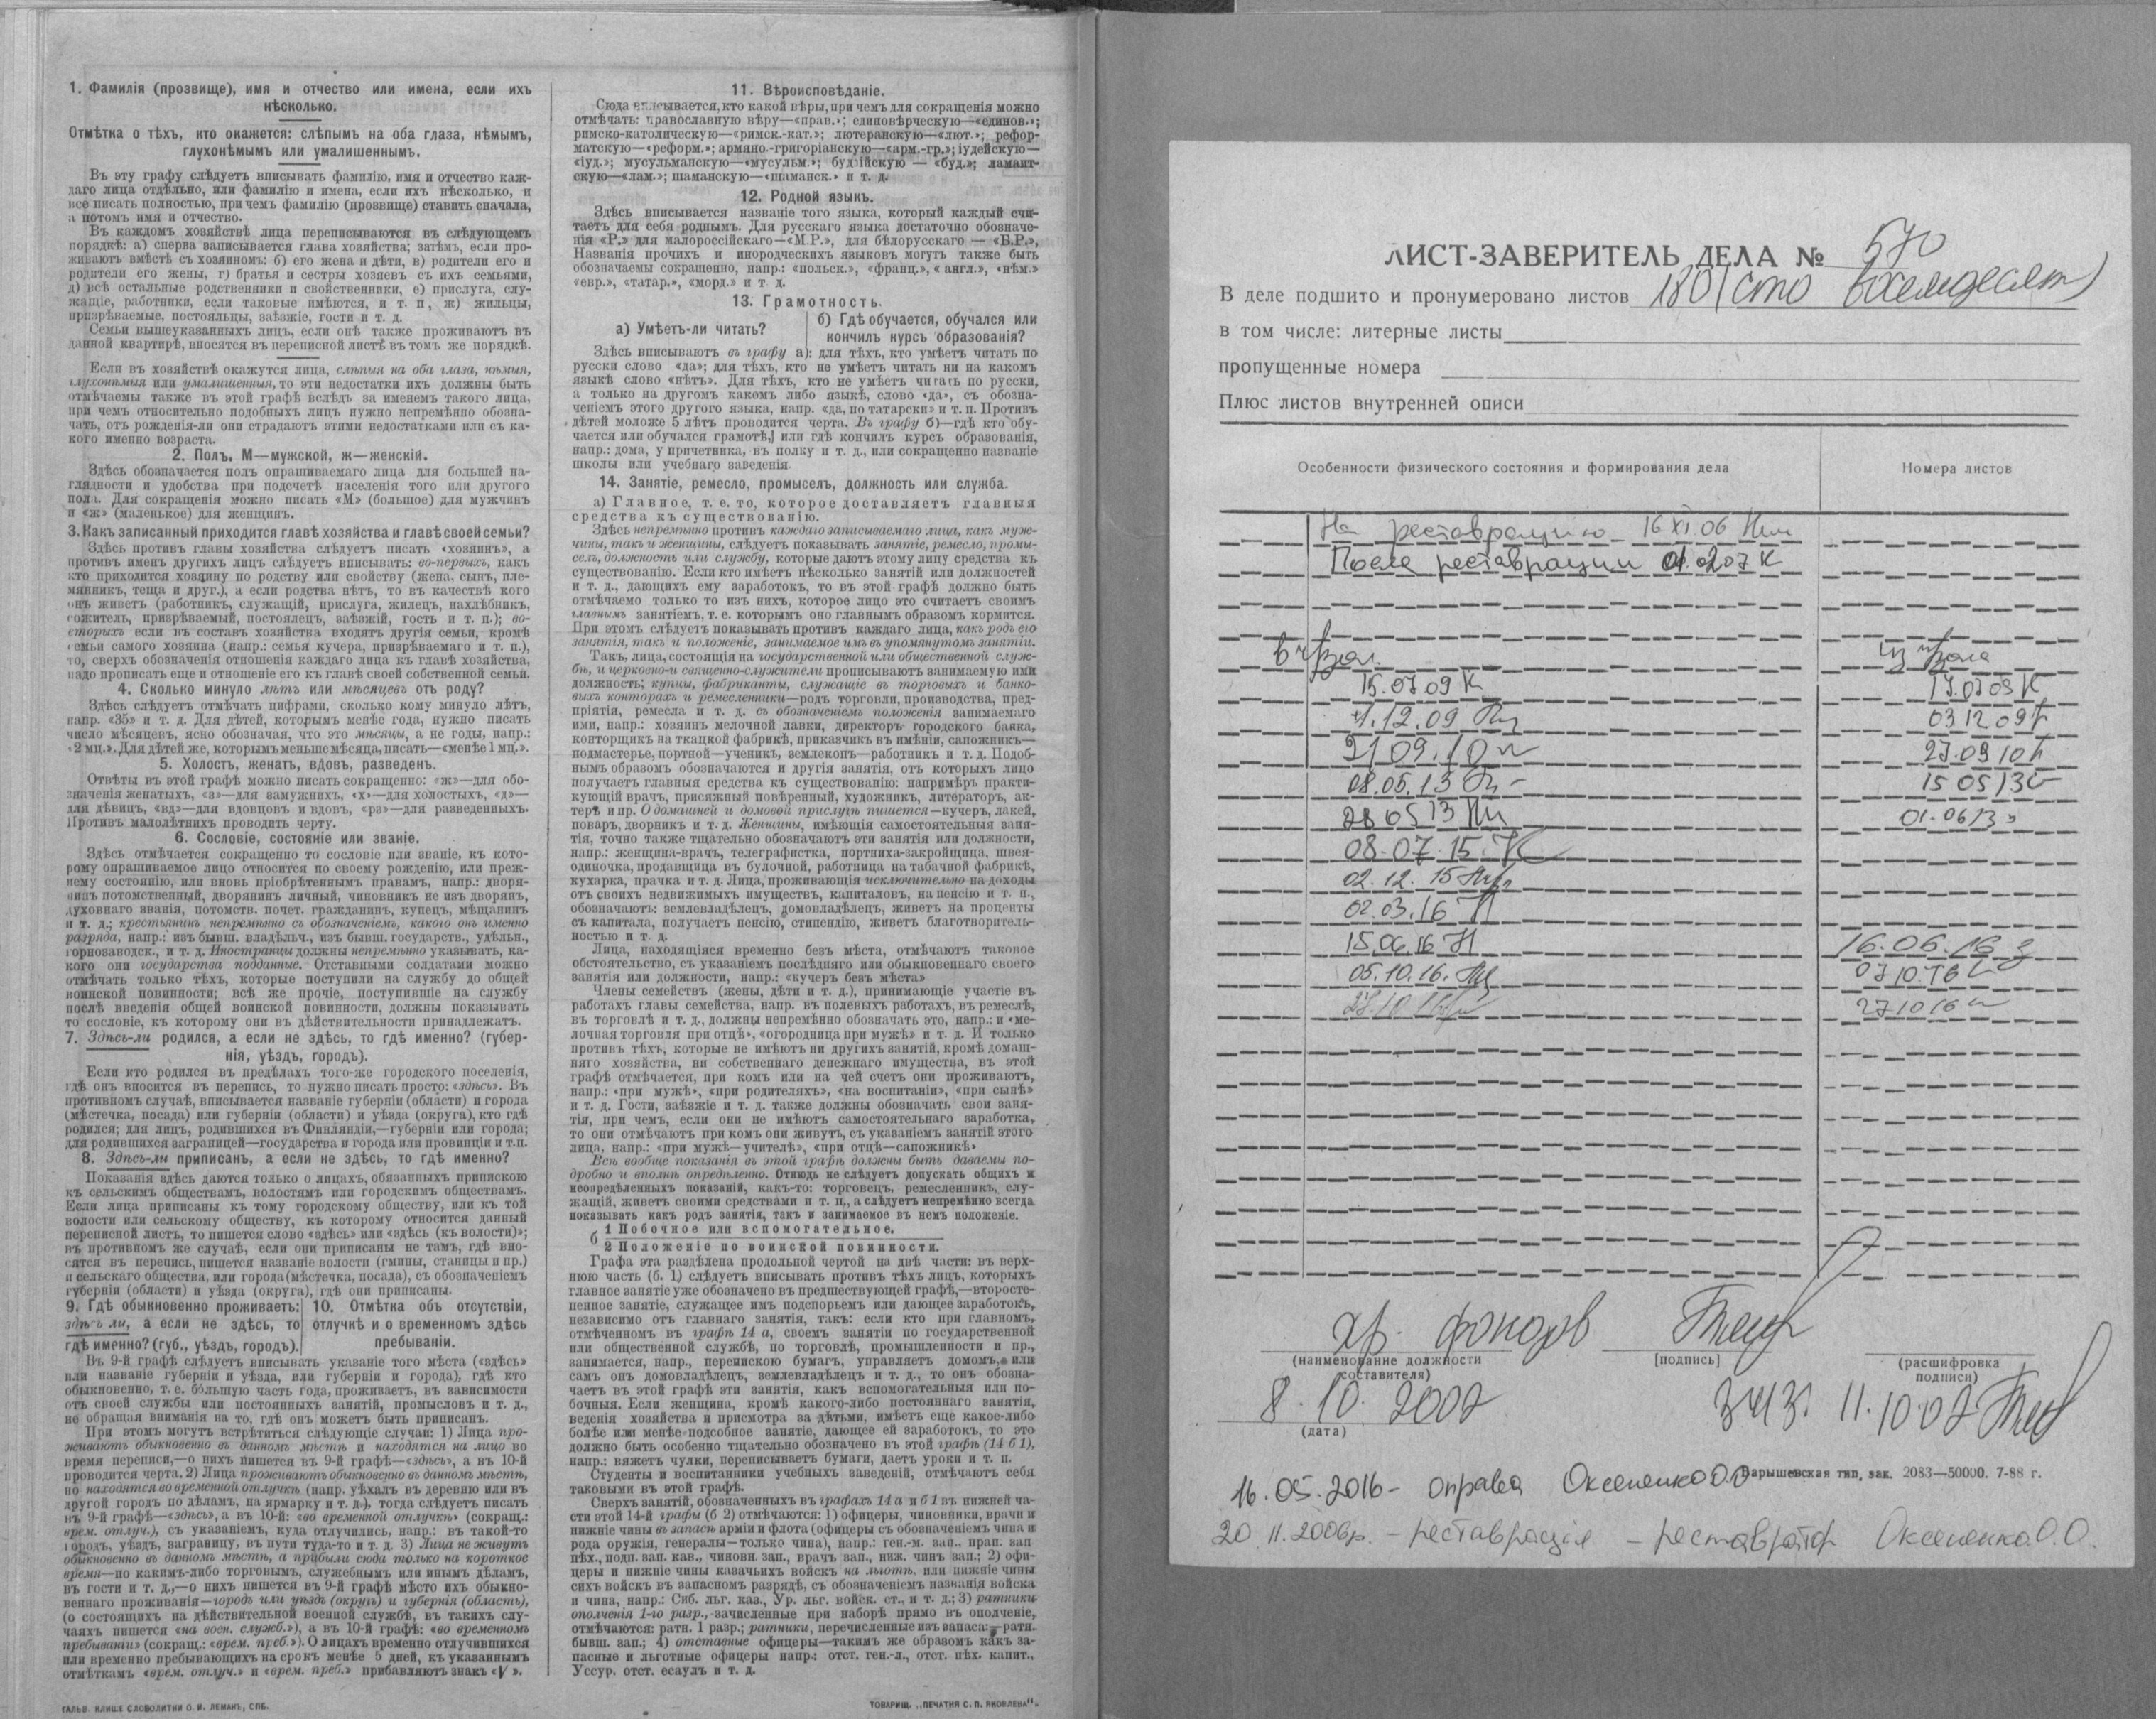 1. Фамилія (прозвище), имя и отчество или имена, если ихъ
нѣсколько.
Отмѣтка о тѣхъ, кто окажется: слѣпымъ на оба глаза, нѣмымъ,
глухонѣмымъ или умалишеннымъ.
Въ эту графу слѣдуетъ вписывать фамилію, имя и отчество каж-
даго лица отдѣльно, или фамилію и имена, если ихъ нѣсколько, и
все писать полностью, при чемъ фамилію (прозвище) ставить сначала,
а потомъ имя и отчество.
Въ каждомъ хозяйствѣ лица переписываются въ слѣдующемъ
порядкѣ: а) сперва записывается глава хозяйства; затѣмъ, если про-
живаютъ вмѣстѣ съ хозяиномъ: б) его жена и дѣти, в) родители его и
родители его жены, г) братья и сестры хозяевъ съ ихъ семьями,
д) всѣ остальные родственники и свойственники, е) прислуга, слу-
жащіе, работники, если таковые имѣются, и т. п, ж) жильцы,
призрѣваемые, постояльцы, заѣзжіе, гости и т. п.
Семьи вышеуказанныхъ лицъ, если онѣ также проживаютъ въ
данной квартирѣ, вносятся въ переписной листъ въ томъ же порядкѣ.
Если въ хозяйствѣ окажутся лица, слѣпыя на оба глаза, нѣмыя,
глухонѣмыя или умалишенныя, то эти недостатки ихъ должны быть
отмѣчаемы также въ этой графѣ вслѣдъ за именемъ такого лица,
при чемъ относительно подобныхъ лицъ нужно непремѣнно обозна-
чать, отъ рожденія-ли они страдаютъ этими недостатками или съ ка-
кого именно возраста.
2. Полъ. М—мужской, ж—женскій.
Здѣсь обозначается полъ опрашиваемаго лица для большей на-
глядности и удобства при подсчетѣ населенія того или другого
пола. Для сокращенія можно писать «М» (большое) для мужчинъ
и «ж» (маленькое) для женщинъ.
3. Какъ записанный приходится главѣ хозяйства и главѣ своей семьи?
Здѣсь противъ главы хозяйства слѣдуетъ писать «хозяинъ», а
противъ именъ другихъ лицъ слѣдуетъ вписывать: во-первыхъ, какъ
кто приходится хозяину по родству или свойству (жена, сынъ, пле-
мянникъ, теща и друг.), а если родства нѣтъ, то въ качествѣ кого
онъ живетъ (работникъ, служащій, прислуга, жилецъ, нахлѣбникъ,
сожитель, призрѣваемый, постоялецъ, заѣзжій, гость и т. п.); во-
вторыхъ если въ составъ хозяйства входятъ другія семьи, кромѣ
семьи самого хозяина (напр.: семья кучера, призрѣваемаго и т. п.),
то, сверхъ обозначенія отношенія каждаго лица къ главѣ хозяйства,
надо прописать еще и отношеніе его къ главѣ своей собственной семьи.
4. Сколько минуло лѣтъ или мѣсяцевъ отъ роду?
Здѣсь слѣдуетъ отмѣчать цифрами, сколько кому минуло лѣтъ,
напр. «35» и т. д. Для дѣтей, которымъ менѣе года, нужно писать
число мѣсяцевъ, ясно обозначая, что это мѣсяцы, а не годы, напр.:
«2 мц.». Для дѣтей же, которымъ меньше мѣсяца, писать—«менѣе 1 мц.».
5. Холостъ, женатъ, вдовъ, разведенъ.
Отвѣты въ этой графѣ можно писать сокращенно: «ж»—для обо-
значенія женатыхъ, «з»—для замужнихъ, «х»—для холостыхъ, «д»—
для дѣвицъ, «вд»—для вдовцовъ и вдовъ, «рз»—для разведенныхъ.
Противъ малолѣтнихъ проводить черту.
6. Сословіе, состояніе или званіе.
Здѣсь отмѣчается сокращенно то сословіе или званіе, къ кото-
рому опрашиваемое лицо относится по своему рожденію, или преж-
нему состоянію, или вновь пріобрѣтеннымъ правамъ, напр.: дворя-
нинъ потомственный, дворянинъ личный, чиновникъ не изъ дворянъ,
духовнаго званія, потомств. почет. гражданинъ, купецъ, мѣщанинъ
и т. д.; крестьянинъ непремѣнно съ обозначеніемъ, какого онъ именно
разряда, напр.: изъ бывш. владѣльч., изъ бывш. государств., удѣльн.,
горнозаводск., и т. д. Иностранцы должны непремѣнно указывать, ка-
кого они государства подданные. Отставными солдатами можно
отмѣчать только тѣхъ, которые поступили на службу до общей
воинской повинности; всѣ же прочіе, поступившіе на службу
послѣ введенія общей воинской повинности, должны показывать
то сословіе, къ которому они въ дѣйствительности принадлежатъ.
7. Здѣсь-ли родился, а если не здѣсь, то гдѣ именно? (губер-
нія, уѣздъ, городъ).
Если кто родился въ предѣлахъ того-же городского поселенія,
гдѣ онъ вносится въ перепись, то нужно писать просто: «здѣсь». Въ
противномъ случаѣ, вписывается названіе губерніи (области) и города
(мѣстечка, посада) или губерніи (области) и уѣзда (округа), кто гдѣ
родился; для лицъ, родившихся въ Финляндіи,—губерніи или города;
для родившихся заграницей—государства и города или провинціи и т.п.
8. Здѣсь-ли приписанъ, а если не здѣсь, то гдѣ именно?
Показанія здѣсь даются только о лицахъ, обязанныхъ припискою
къ сельскимъ обществамъ, волостямъ или городскимъ обществамъ.
Если лица приписаны къ тому городскому обществу, или къ той
волости или сельскому обществу, къ которому относится данный
переписной листъ, то пишется слово «здѣсь» или «здѣсь (къ волости)»;
въ противномъ же случаѣ, если они приписаны не тамъ, гдѣ вно-
сятся въ перепись, пишется названіе волости (гмины, станицы и пр.)
и сельскаго общества, или города (мѣстечка, посада), съ обозначеніемъ
губерніи (области) и уѣзда (округа), гдѣ они приписаны.
9. Гдѣ обыкновенно проживаетъ:
здѣсь ли, а если не здѣсь, то
гдѣ именно? (губ., уѣздъ, городъ).
10. Отмѣтка объ отсутствіи,
отлучкѣ и о временномъ здѣсь
пребываніи.
Въ 9-й графѣ слѣдуетъ вписывать указаніе того мѣста («здѣсь»
или названіе губерніи и уѣзда, или губерніи и города), гдѣ кто
обыкновенно, т. е. бо́льшую часть года, проживаетъ, въ зависимости
отъ своей службы или постоянныхъ занятій, промысловъ и т. д.,
не обращая вниманія на то, гдѣ онъ можетъ быть приписанъ.
При этомъ могутъ встрѣтиться слѣдующіе случаи: 1) Лица про-
живаютъ обыкновенно въ данномъ мѣстѣ и находятся на лицо во
время переписи,—о нихъ пишется въ 9-й графѣ—«здѣсь», а въ 10-й
проводится черта. 2) Лица проживаютъ обыкновенно въ данномъ мѣстѣ,
но находятся во временной отлучкѣ (напр. уѣхалъ въ деревню или въ
другой городъ по дѣламъ, на ярмарку и т. д.), тогда слѣдуетъ писать
въ 9-й графѣ—«здѣсь», а въ 10-й: «во временной отлучкѣ» (сокращ.:
врем. отлуч.), съ указаніемъ, куда отлучились, напр.: въ такой-то
городъ, уѣздъ, заграницу, въ пути туда-то и т. д. 3) Лица не живутъ
обыкновенно въ данномъ мѣстѣ, а прибыли сюда только на короткое
время—по какимъ-либо торговымъ, служебнымъ или инымъ дѣламъ,
въ гости и т. д.,—о нихъ пишется въ 9-й графѣ мѣсто ихъ обыкно-
веннаго проживанія—городъ или уѣздъ (округъ) и губернія (область),
(о состоящихъ на дѣйствительной военной службѣ, въ такихъ слу-
чаяхъ пишется «на воен. служб.»), а въ 10-й графѣ: «во временномъ
пребываніи» (сокращ.: «врем. преб.»). О лицахъ временно отлучившихся
или временно пребывающихъ на срокъ менѣе 5 дней, къ указаннымъ
отмѣткамъ «врем. отлуч.» и «врем. преб.» прибавляютъ знакъ «V».
ГАЛЬВ. КЛИШЕ СЛОВОЛИТНИ О. И. ЛЕМАНЪ, СПБ.
11. Вѣроисповѣданіе.
Сюда вписывается, кто какой вѣры, при чемъ для сокращенія можно
отмѣчать: православную вѣру—«прав.»; единовѣрческую—«единов.»;
римско-католическую—«римск.-кат.»; лютеранскую—«лют.»; рефор-
матскую—«реформ.»; армяно.-григоріанскую—«арм.-гр.»; іудейскую—
«іуд.»; мусульманскую—«мусульм.»; буддійскую — «буд.»; ламаит-
скую—«лам.»; шаманскую—«шаманск.» и т. д.
12. Родной языкъ.
Здѣсь вписывается названіе того языка, который каждый счи-
таетъ для себя роднымъ. Для русскаго языка достаточно обозначе-
нія «Р.» для малороссійскаго—«М.Р.», для бѣлорусскаго — «Б.Р.»,
Названія прочихъ и инородческихъ языковъ могутъ также быть
обозначаемы сокращенно, напр.: «польск.», «франц.», «англ.», «нѣм.»
«евр.», «татар.», «морд.» и т д.
13. Грамотность.
а) Умѣетъ-ли читать?
б) Гдѣ обучается, обучался или
кончилъ курсъ образованія?
Здѣсь вписываютъ въ графу а): для тѣхъ, кто умѣетъ читать по
русски слово «да»; для тѣхъ, кто не умѣетъ читать ни на какомъ
языкѣ слово «нѣтъ». Для тѣхъ, кто не умѣетъ читать по русски,
а только на другомъ какомъ либо языкѣ, слово «да», съ обозна-
ченіемъ этого другого языка, напр. «да, по татарски» и т. п. Противъ
дѣтей моложе 5 лѣтъ проводится черта. Въ графу б)—гдѣ кто обу-
чается или обучался грамотѣ, или гдѣ кончилъ курсъ образованія,
напр.: дома, у причетника, въ полку и т. д., или сокращенно названіе
школы или учебнаго заведенія.
14. Занятіе, ремесло, промыселъ, должность или служба.
а) Главное, т. е. то, которое доставляетъ главныя
средства къ существованію.
Здѣсь непремѣнно противъ каждаго записываемаго лица, какъ муж-
чины, такъ и женщины, слѣдуетъ показывать занятіе, ремесло, промы-
селъ, должность или службу, которые даютъ этому лицу средства къ
существованію. Если кто имѣетъ нѣсколько занятій или должностей
и т. д., дающихъ ему заработокъ, то въ этой графѣ должно быть
отмѣчаемо только то изъ нихъ, которое лицо это считаетъ своимъ
главнымъ занятіемъ, т. е. которымъ оно главнымъ образомъ кормится.
При этомъ слѣдуетъ показывать противъ каждаго лица, какъ родъ его
занятія, такъ и положеніе, занимаемое имъ въ упомянутомъ занятіи.
Такъ, лица, состоящія на государственной или общественной служ-
бѣ, и церковно-и священно-служители прописываютъ занимаемую ими
должность; купцы, фабриканты, служащіе въ торговыхъ и банко-
выхъ конторахъ и ремесленники—родъ торговли, производства, пред-
пріятія, ремесла и т. д. съ обозначеніемъ положенія занимаемаго
ими, напр.: хозяинъ мелочной лавки, директоръ городского банка,
конторщикъ на ткацкой фабрикѣ, приказчикъ въ имѣніи, сапожникъ—
подмастерье, портной—ученикъ, землекопъ—работникъ и т. д. Подоб-
нымъ образомъ обозначаются и другія занятія, отъ которыхъ лицо
получаетъ главныя средства къ существованію: напримѣръ практи-
кующій врачъ, присяжный повѣренный, художникъ, литераторъ, ак-
теръ и пр. О домашней и домовой прислугѣ пишется—кучеръ, лакей,
поваръ, дворникъ и т. д. Женщины, имѣющія самостоятельныя заня-
тія, точно также тщательно обозначаютъ эти занятія или должности,
напр.: женщина-врачъ, телеграфистка, портниха-закройщица, швея-
одиночка, продавщица въ булочной, работница на табачной фабрикѣ,
кухарка, прачка и т. д. Лица, проживающія исключительно на доходы
отъ своихъ недвижимыхъ имуществъ, капиталовъ, на пенсію и т. п.,
обозначаютъ: землевладѣлецъ, домовладѣлецъ, живетъ на проценты
съ капитала, получаетъ пенсію, стипендію, живетъ благотворитель-
ностью и т. д.
Лица, находящіяся временно безъ мѣста, отмѣчаютъ таковое
обстоятельство, съ указаніемъ послѣдняго или обыкновеннаго своего
занятія или должности, напр.: «кучеръ безъ мѣста»
Члены семействъ (жены, дѣти и т. д.), принимающіе участіе въ
работахъ главы семейства, напр. въ полевыхъ работахъ, въ ремеслѣ,
въ торговлѣ и т. д., должны непремѣнно обозначать это, напр.: и «ме-
лочная торговля при отцѣ», «огородница при мужѣ» и т. д. И только
противъ тѣхъ, которые не имѣютъ ни другихъ занятій, кромѣ домаш-
няго хозяйства, ни собственнаго денежнаго имущества, въ этой
графѣ отмѣчается, при комъ или на чей счетъ они проживаютъ,
напр.: «при мужѣ», «при родителяхъ», «на воспитаніи», «при сынѣ»
и т. д. Гости, заѣзжіе и т. д. также должны обозначать свои заня-
тія, при чемъ, если они не имѣютъ самостоятельнаго заработка,
то они отмѣчаютъ при комъ они живутъ, съ указаніемъ занятій этого
лица, напр.: «при мужѣ—учителѣ», «при отцѣ—сапожникѣ»
Всѣ вообще показанія въ этой графѣ должны быть даваемы по-
дробно и вполнѣ опредѣленно. Отнюдь не слѣдуетъ допускать общихъ и
неопредѣленныхъ показаній, какъ-то: торговецъ, ремесленникъ, слу-
жащій, живетъ своими средствами и т. п., а слѣдуетъ непремѣнно всегда
показывать какъ родъ занятія, такъ и занимаемое въ немъ положеніе.
б
1 Побочное или вспомогательное.
2 Положеніе по воинской повинности.
Графа эта раздѣлена продольной чертой на двѣ части: въ верх-
нюю часть (б. 1) слѣдуетъ вписывать противъ тѣхъ лицъ, которыхъ
главное занятіе уже обозначено въ предшествующей графѣ,—второсте-
пенное занятіе, служащее имъ подспорьемъ или дающее заработокъ,
независимо отъ главнаго занятія, такъ: если кто при главномъ,
отмѣченномъ въ графѣ 14 а, своемъ занятіи по государственной
или общественной службѣ, по торговлѣ, промышленности и пр.,
занимается, напр., перепискою бумагъ, управляетъ домомъ, или
самъ онъ домовладѣлецъ, землевладѣлецъ и т. д., то онъ обозна-
чаетъ въ этой графѣ эти занятія, какъ вспомогательныя или по-
бочныя. Если женщина, кромѣ какого-либо постояннаго занятія,
веденія хозяйства и присмотра за дѣтьми, имѣетъ еще какое-либо
болѣе или менѣе подсобное занятіе, дающее ей заработокъ, то это
должно быть особенно тщательно обозначено въ этой графѣ (14 б 1),
напр.: вяжетъ чулки, переписываетъ бумаги, даетъ уроки и т. п.
Студенты и воспитанники учебныхъ заведеній, отмѣчаютъ себя
таковыми въ этой графѣ.
Сверхъ занятій, обозначенныхъ въ графахъ 14 а и б 1 въ нижней ча-
сти этой 14-й графы (б 2) отмѣчаются: 1) офицеры, чиновники, врачи и
нижніе чины въ запасѣ арміи и флота (офицеры съ обозначеніемъ чина и
рода оружія, генералы—только чина), напр.: ген.-м. зап., прап. зап
пѣх., подп. зап. кав., чиновн. зап., врачъ зап., ниж. чинъ зап.; 2) офи-
церы и нижніе чины казачьихъ войскъ на льготѣ, или нижніе чины
сихъ войскъ въ запасномъ разрядѣ, съ обозначеніемъ названія войска
и чина, напр.: Сиб. льг. каз., Ур. льг. войск. ст., и т. д.; 3) ратники
ополченія 1-го разр., зачисленные при наборѣ прямо въ ополченіе,
отмѣчаются: ратн. 1 разр.; ратники, перечисленные изъ запаса:—ратн.
бывш. зап.; 4) отставные офицеры—такимъ же образомъ какъ за-
пасные и льготные офицеры напр.: отст. ген.-л., отст. пѣх. капит.,
Уссур. отст. есаулъ и т. д.
ТОВАРИЩ. „ПЕЧАТНЯ С. П. ЯКОВЛЕВА“.
ЛИСТ-ЗАВЕРИТЕЛЬ ДЕЛА № 570
В деле подшито и пронумеровано листов 180 (сто восемдесят)
в том числе: литерные листы
пропущенные номера
Плюс листов внутренней описи
Особенности физического состояния и формирования дела
Номера листов
На реставрацию 16 XI.06
После реставрации 01.02.07 К
в ч/зал. из ч/зала
15.07.09 К 17.07.09 К
1.12.09 03 12 09
21 09.10 27.09 10
08.05.13 15 05 13
28 05 13 01.06 13
08.07.15. К
02.12.15
02.03.16
15.06.16 16.06.16
05.10.16. 07 10.16
27.10.16 27 10 16
хр. фондов
(наименование должности
составителя)
[подпись]
(расшифровка
подписи)
8.10.2007
11.10.07
(дата)
Барышевская тип. зак. 2083—50000. 7-88 г.
16.05.2016- оправа Оксененко О.О
20.11.2006р. - реставрація - реставратор Оксененко О.О.